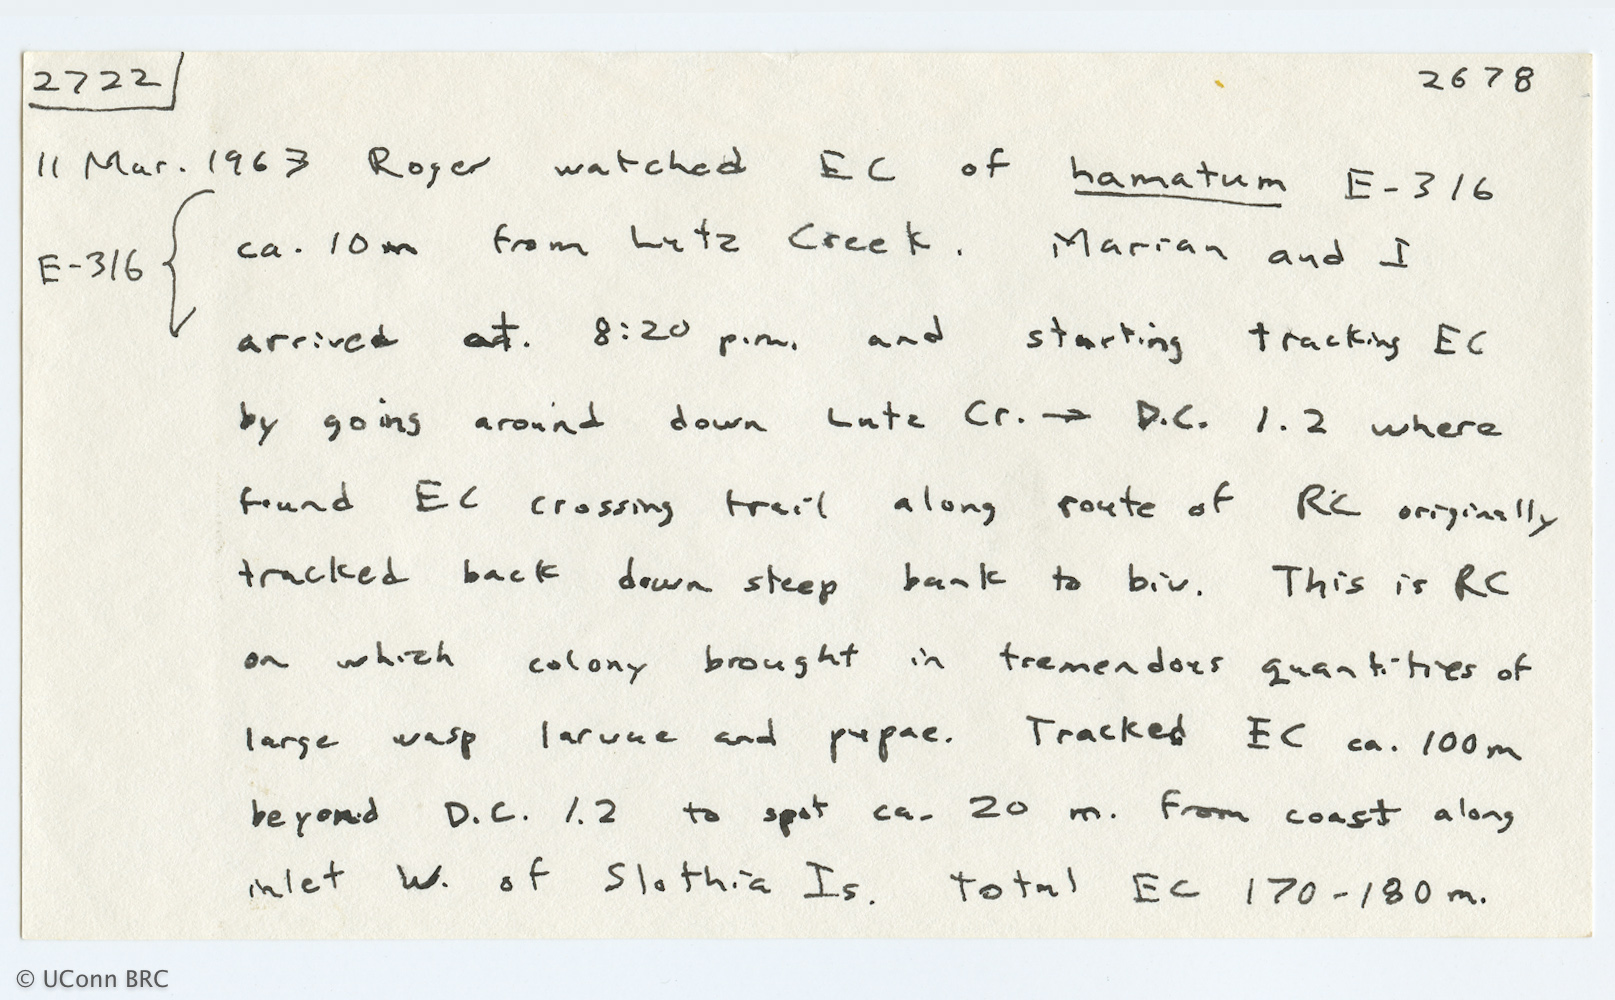 2722
2678
11 Mar. 1963 Roger watched EC of hamatum E-316
E-316
ca. 10m from Lutz Creek. Marian and I
arrived at. 8:20 p.m. and starting tracking EC
by going around down Lutz Cr. → D.C. 1.2 where
found EC crossing trail along route of RC originally
tracked back down steep bank to biv. This is RC
on which colony brought in tremendous quantities of
large wasp larvae and pupae. Tracked EC ca. 100m
beyond D.C. 1.2 to spot ca. 20 m. from coast along
inlet W. of Slothia Is. total EC 170-180 m.
© UConn BRC